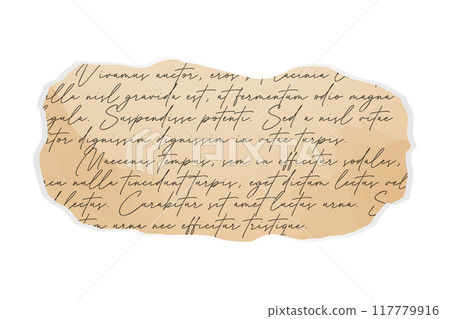 Vivamus auctor, eros, lacinia
illa nisl gravida est, at fermentum odio magna
gula. Suspendisse potenti. Sed a nisl vitae
tor dignissim dignissim in vitae turpis.
Maecenas tempus, sem in efficitur sodales,
eu nulla tincidunt turpis, eget dictum lectus vel
lectus. Curabitur sit amet luctus urna. S
m urna nec efficitur tristique.
PIXTA
117779916